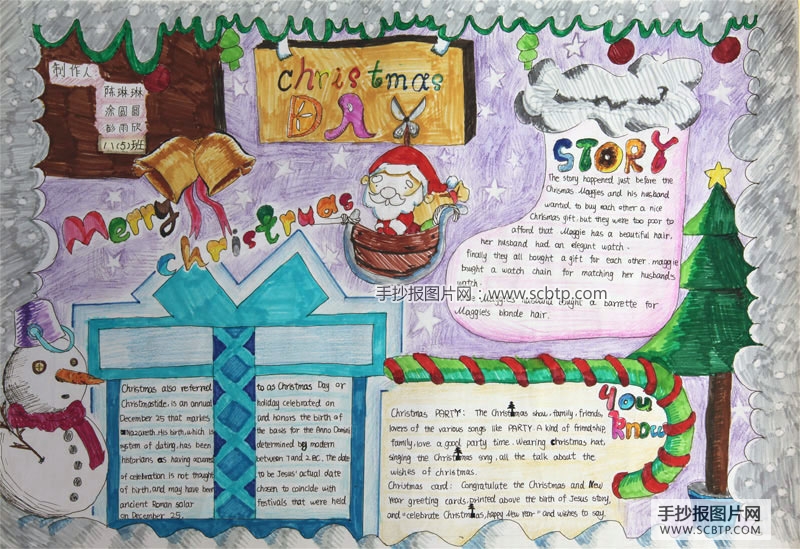 制作人
陈琳琳
涂圆圆
彭雨欣
11(5)班
christmas
DAY
Merry
christruas
STORY
The story happened just before the
Chrismas Maggies and his husband
wanted to buy each other a nice
Chrikmas gift. but they were too poor to
afford that Maggie has a beautiful hair.
her husband had an elegant watch.
finally they all bought a gift for each other. maggie
bought a watch chain for matching her husband's
watch.
Maggie's husband bought a barrette for
Maggie's blonde hair.
手抄报图片网:www.scbtp.com
Christmas also referred to as Christmas Day or
Christmastide, is an annual holiday celebrated on
December 25 that markes and honors the birth of
Nazareth. His birth, which is the basis for the Anno Domini
system of dating, has been determined by modern
historians as having occured between 7 and 2 BC. The date
of celebration is not thought to be Jesus' actual date
of birth, and may have been chosen to coincide with
ancient Roman solar festivals that were held
on December 25.
you
know
Christmas PARTY: The Christmas show. family, friends,
lovers of the various songs like PARTY. A kind of friendship,
family, love a good party time. Wearing christmas hat,
singing the Christmas song, all the talk about the
wishes of christmas.
Christmas card: Congratulate the Christmas and New
Year greeting cards, printed above the birth of Jesus story,
and "celebrate Christmas, happy New Year" and wishes to say.
手抄报图片网
WWW.SCBTP.COM